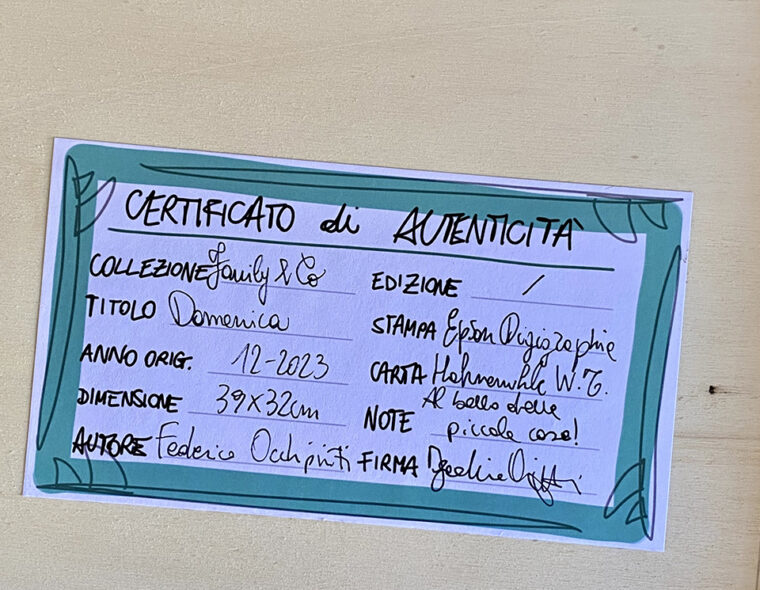 CERTIFICATO di AUTENTICITÀ
COLLEZIONE Family & Co
TITOLO Domenica
ANNO ORIG. 12-2023
DIMENSIONE 39x32cm
AUTORE Federico Occhipinti
EDIZIONE /
STAMPA Epson Digigraphie
CARTA Hahnemühle W.T.
NOTE Al bello delle
piccole cose!
FIRMA